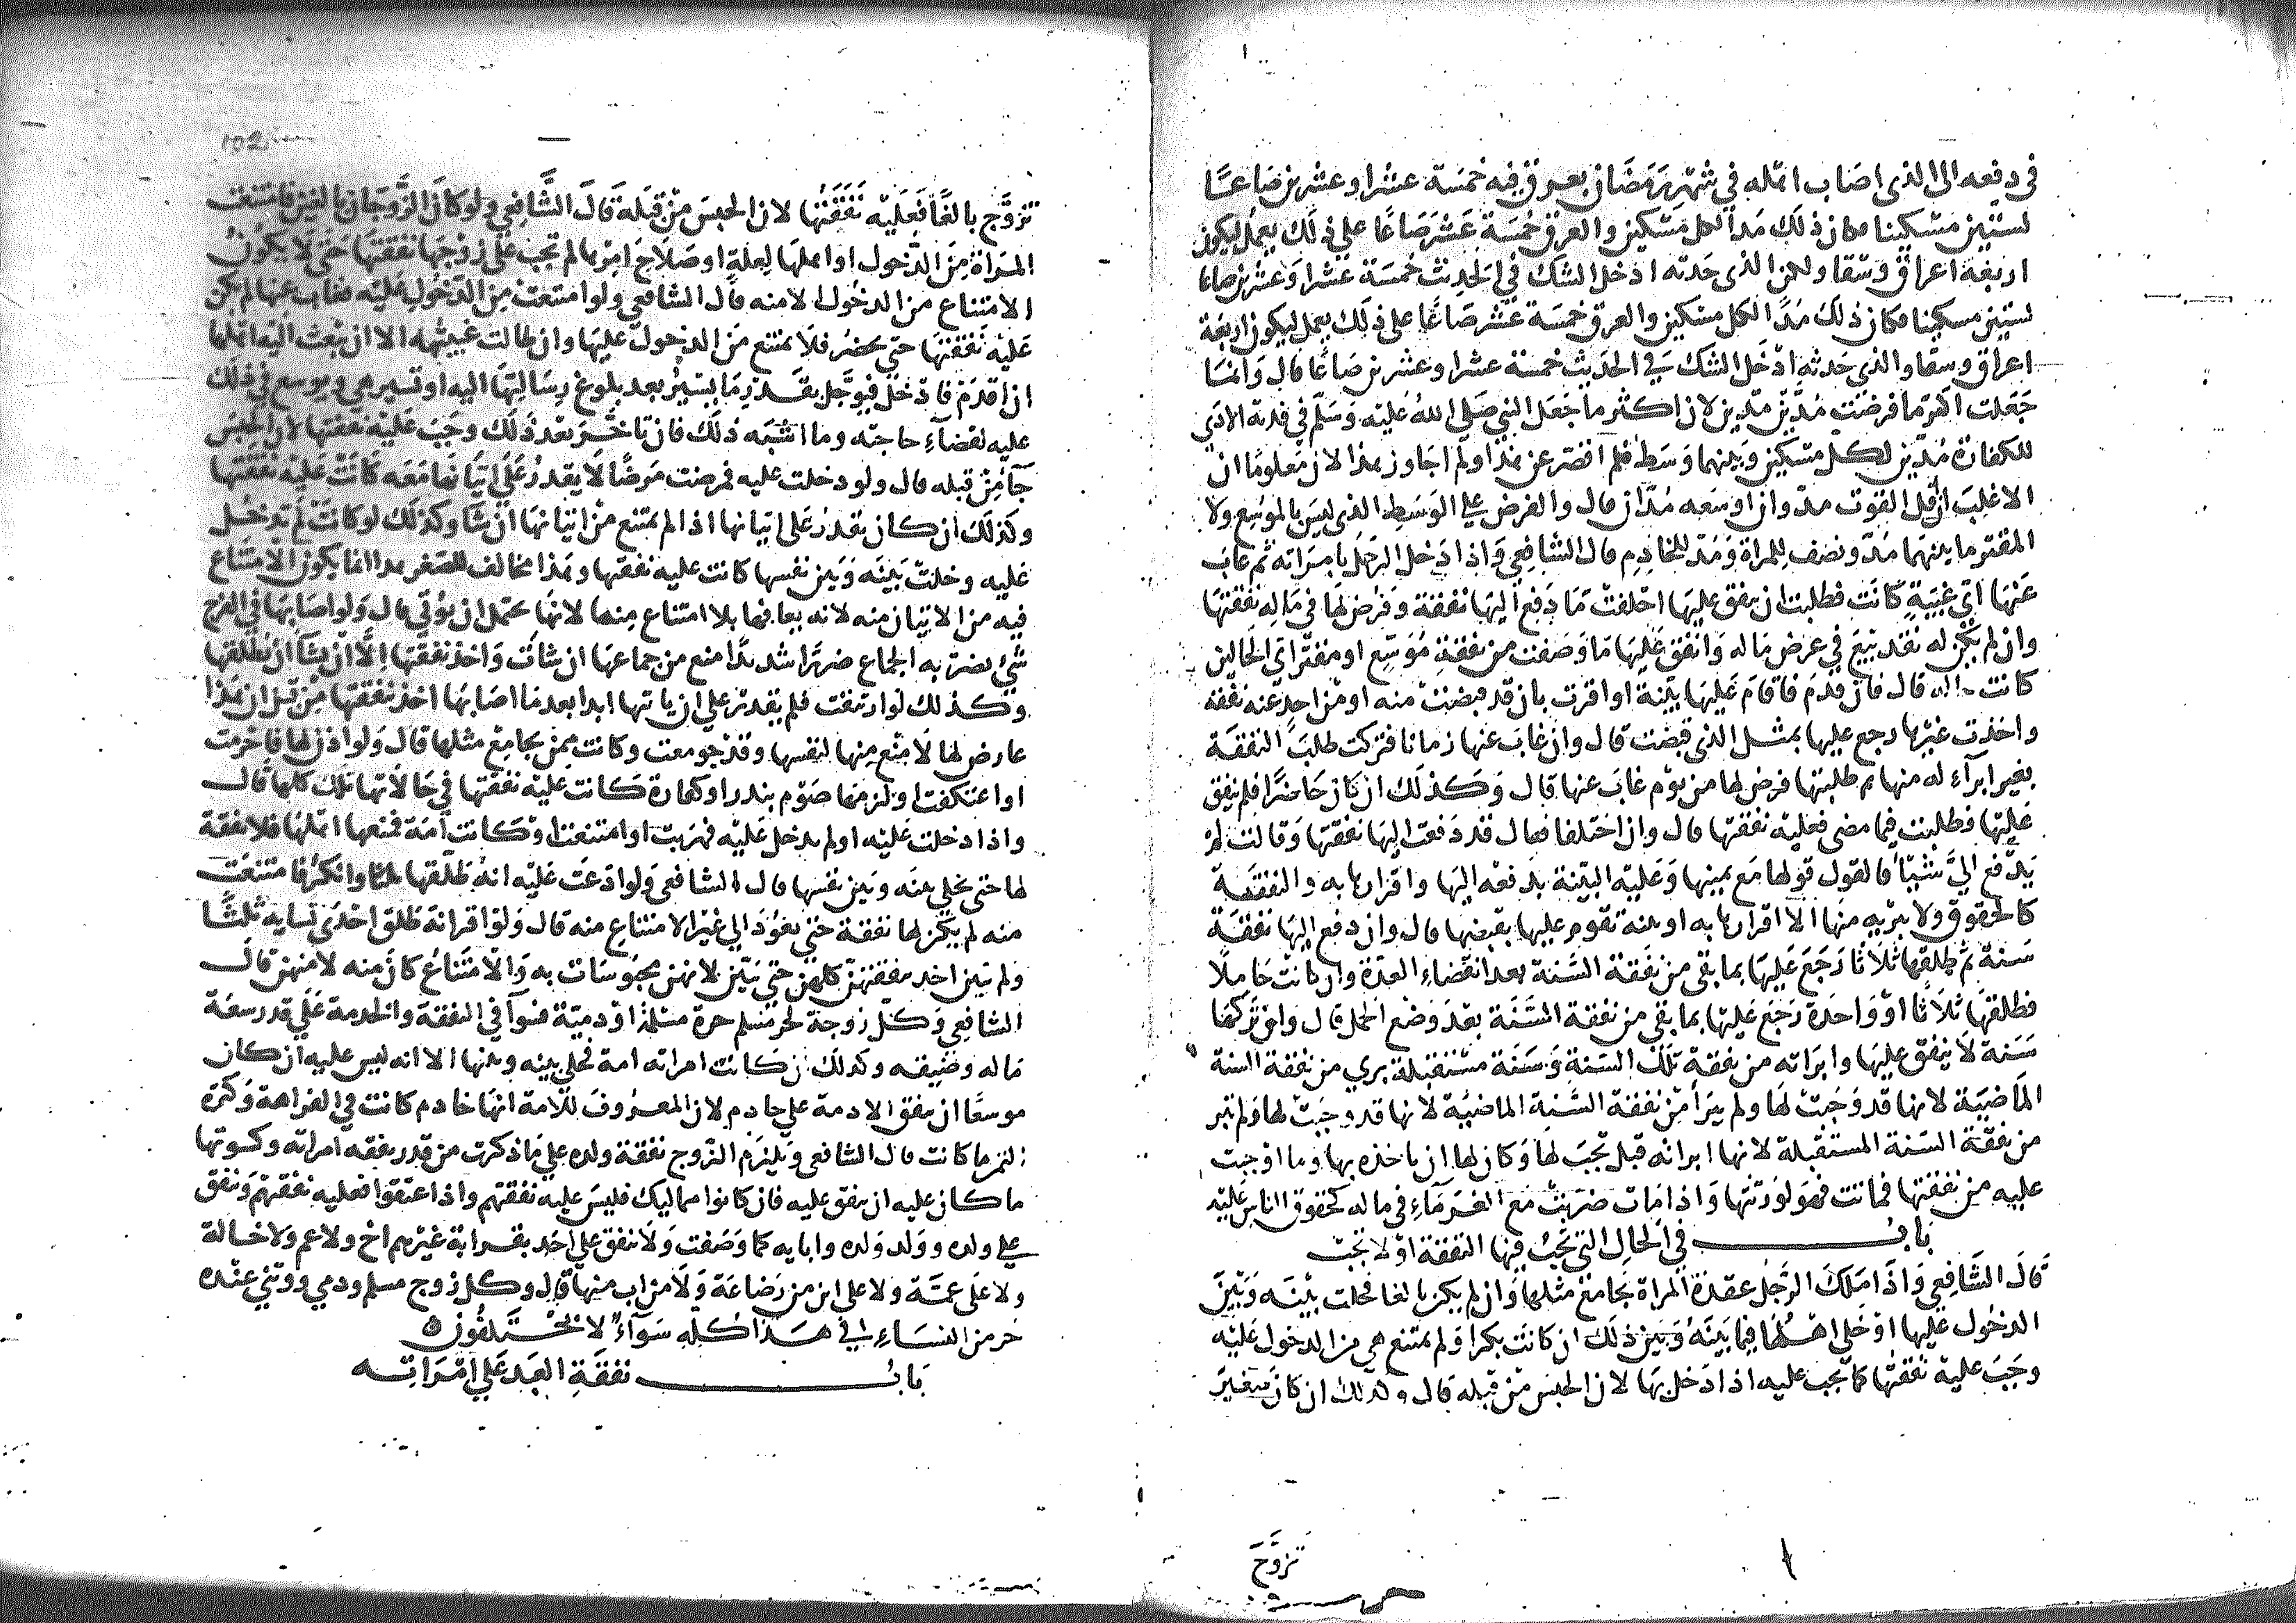 في دفعه الى الذي اصاب اهله في شهر رمضان بعرق فيه خمسة عشر او عشرين صاعًا
لستين مسكينا فكان ذلك مدا لكل مسكين والعرق خمسة عشر صاعًا على ذلك يعمل ليكون
اربعة اعراق وسقا ولكن الذي حدثه ادخل الشك في الحديث خمسة عشر او عشرين صاعا
لستين مسكينا فكان ذلك مُدًّا لكل مسكين والعرق خمسة عشر صاعًا على ذلك يعمل ليكون اربعة
اعراق وسقا والذي حدثه ادخل الشك في الحديث خمسة عشر او عشرين صاعًا قال وانما
جعلت اكثر ما فرضت مُدّين مدّين لان اكثر ما جعل النبي صلى الله عليه وسلم في فدية الاذي
للكفارة مُدّين لكل مسكين وبينهما وسط فلم اقصر عن هذا ولم اجاوز هذا لان معلومًا ان
الاغلب ان اقل القوت مدّ وان اوسعه مُدّان قال والفرض على الوسط الذي ليس بالموسع ولا
المقتر ما بينهما مدّ ونصف للمراة ومدّ للخادم قال الشافعي واذا دخل الرجل بامراته ثم غاب
عنها اي غيبة كانت فطلبت ان ينفق عليها احلفت ما دفع اليها نفقة وفرض لها في ماله نفقتها
وان لم يكن له نقد بيع في عرض ماله وانفق عليها ما وصفت من نفقة موسّع او مقتّر اي الحالين
كانت حاله قال فان قدم فاقام عليها بينة او اقرت بان قد قبضت منه او من احد عنه نفقة
واخذت غيرها رجع عليها بمثل الذي قبضت قال وان غاب عنها زمانا فتركت طلب النفقة
بغير ابرآء له منها ثم طلبتها فرض لها من يوم غاب عنها قال وكذلك ان كان حاضرًا فلم ينفق
عليها فطلبت فيما مضى فعليه نفقتها قال وان اختلفا فقال قد دفعت اليها نفقتها وقالت لم
يدفع اليَّ شيئًا فالقول قولها مع يمينها وعليه البينة بدفعه اليها واقرارها به والنفقة
كالحقوق ولا يبريه منها الا اقرارها به او بينة تقوم عليها بقبضها قال وان دفع اليها نفقة
سنة ثم طلقها ثلاثا رجع عليها بما بقى من نفقة السنة بعد انقضاء العدة وان كانت حاملًا
فطلقها ثلاثًا او واحدة رجع عليها بما بقى من نفقة السنة بعد وضع الحمل قال وان تركها
سنة لا ينفق عليها وابراته من نفقة تلك السنة وسنة مستقبلة بري من نفقة السنة
الماضية لانها قد وجبت لها ولم يبرأ من نفقة السنة الماضية لانها قد وجبت لها ولم تبر
من نفقة السنة المستقبلة لانها ابراته قبل تجب لها وكان لها ان ياخذه بها وما اوجبت
عليه من نفقتها فماتت فهو لورثتها واذا مات ضربت مع الغرماء في ماله كحقوق الناس عليه
بابُ في الحال التي تجب فيها النفقة او لا تجب
قال الشافعي واذا ملك الرجل عقدة المراة يجامع مثلها وان لم يكن بالغا فخلت بينه وبين
الدخول عليها او خلى اهلها فيما بينه وبين ذلك ان كانت بكرا ولم تمتنع هي من الدخول عليه
وجب عليه نفقتها كما تجب عليه اذا دخل بها لان الحبس من قبله قال وكذلك ان كان صغير
تزوّج
102
تزوّج بالغًا فعليه نفقتها لان الحبس من قبله قال الشافعي ولو كان الزوجان بالغين فامتنعت
المراة من الدخول او اهلها لعلة او صلاح امرها لم تجب على زوجها نفقتها حتى لا يكون
الامتناع من الدخول الا منه قال الشافعي ولو امتنعت من الدخول عليه فغاب عنها لم يكن
عليه نفقتها حتى يحضر فلا يمتنع من الدخول عليها وان طالت غيبته الا ان تبعث اليه اهلها
ان اقدم فادخل فيؤجل بقدر ما يسير بعد بلوغ رسالتها اليه او تسير هي ويوسع في ذلك
عليه لقضآء حاجته وما اشبه ذلك فان تاخر بعد ذلك وجب عليه نفقتها لان الحبس
جآ من قبله قال ولو دخلت عليه فمرضت مرضًا لا يقدر على اتيانها معه كانت عليه نفقتها
وكذلك ان كان يقدر على اتيانها اذا لم تمتنع من اتيانها ان شا وكذلك لو كانت لم تدخل
عليه وخلت بينه وبين نفسها كانت عليه نفقتها وهذا مخالف للصغر هذا انما يكون الامتناع
فيه من الاتيان منه لانه يعافها بلا امتناع منها لانها تحتمل ان يؤتي قال ولو اصابها في الفرج
شيء يضرّ به الجماع ضررًا شديدًا منع من جماعها ان شات واخذ نفقتها الّا ان يشا ان يطلقها
وكذلك لو ارتتقت فلم يقدر على ان ياتيها ابدا بعدما اصابها اخذ نفقتها من قبل ان هذا
عارض لها لا منع منها لنفسها وقد جومعت وكانت ممن يجامع مثلها قال ولو اذن لها فاحرمت
او اعتكفت او لزمها صوم بنذر او كفارة كانت عليه نفقتها في حالاتها تلك كلها قال
واذا دخلت عليه او لم تدخل عليه فهربت او امتنعت او كانت امة فمنعها اهلها فلا نفقة
لها حتى يخلي بينه وبين نفسها قال الشافعي ولو ادعت عليه انه طلقها ثلاثا وانكر فامتنعت
منه لم يكن لها نفقة حتى تعود الى غير الامتناع منه قال ولو اقر انه طلق احدى نسايه ثلثًا
ولم تبين اخذ بنفقتهن كلهن حتى يبين لانهن محبوسات به والامتناع كان منه لا منهن قال
الشافعي وكل زوجة لحر مسلم حرة مسلمة او ذمية فسوآ في النفقة والخدمة على قدر سعة
ماله وضيقه وكذلك ان كانت امراته امة فخلي بينه وبينها الا انه ليس عليه ان كان
موسعًا ان ينفق للامة على خادم لان المعروف للامة انها خادم كانت في الفراهة وكثرة
الثمن ما كانت قال الشافعي ويلزم الزوج نفقة ولده على ما ذكرت من قدر نفقة امراته وكسوتها
ما كان عليه ان ينفق عليه فان كانوا مماليك فليس عليه نفقتهم واذا عتقوا فعليه نفقتهم وينفق
على ولده وولد ولده وابايه كما وصفت ولا ينفق على احد بقرابة غيرهم اخ ولا عم ولا خالة
ولا على عمّة ولا على ابن من رضاعة ولا من اب منها قال وكل زوج مسلم وذمي ووثني عنده
حر من النساء في هذا كله سوآء لا يختلفون
بابُ نفقة العبد على امراته